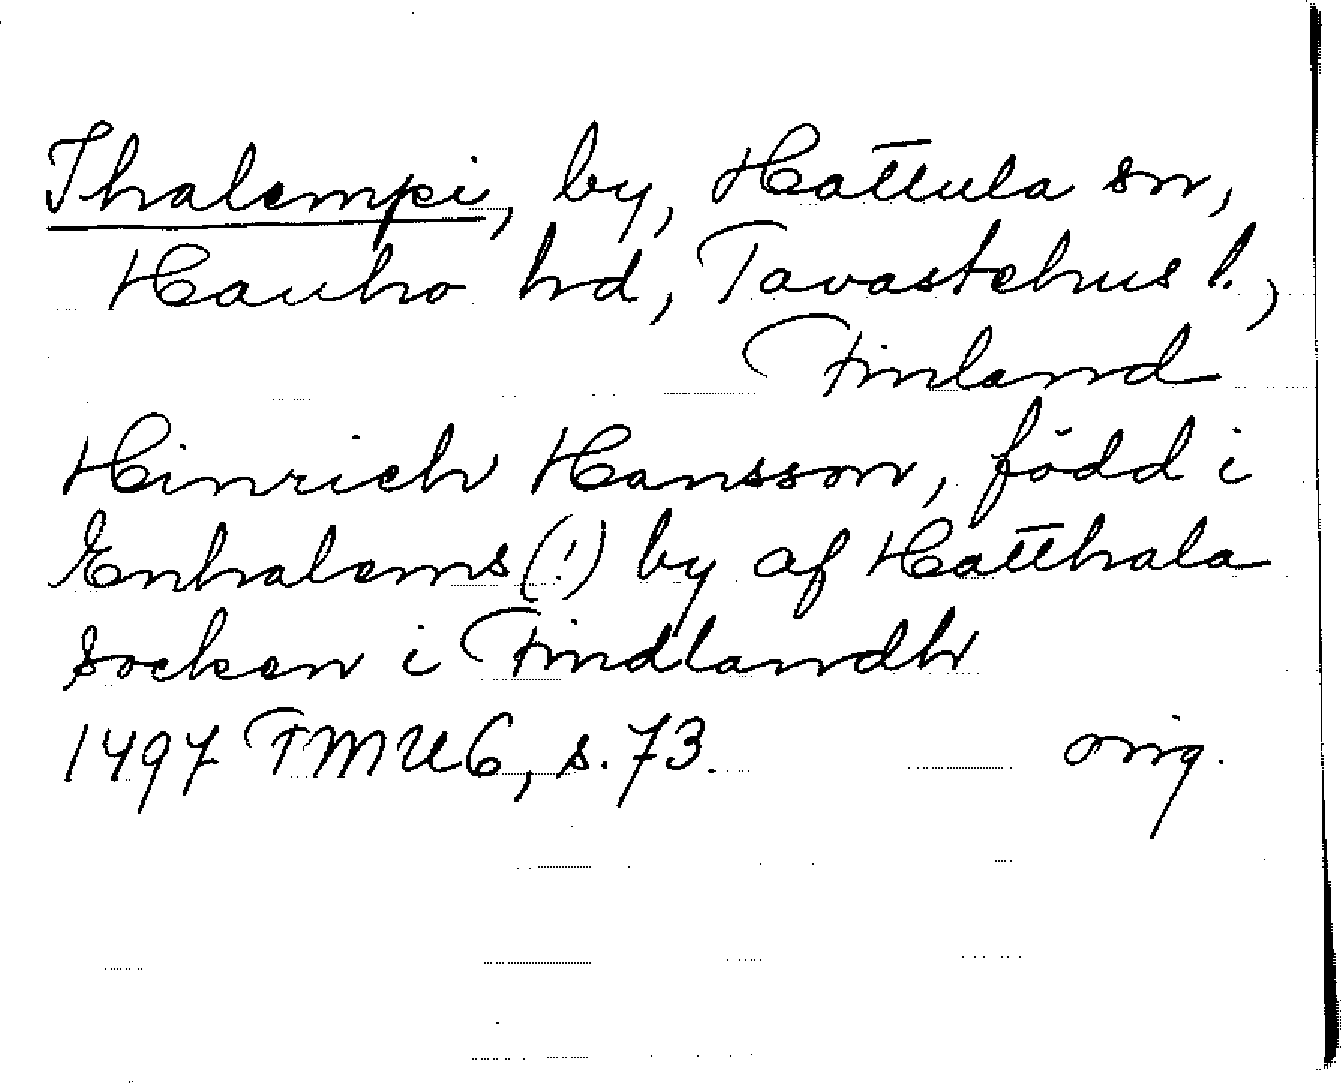 Ihalempi, by, Hattula sn,
Hauho hd, Tavastehus l.,
Finland
Hinrich Hansson, född i
Enhalems(!) by af Hatthala
Socken i Findlandh
1497 FMU6, s. 73. orig.